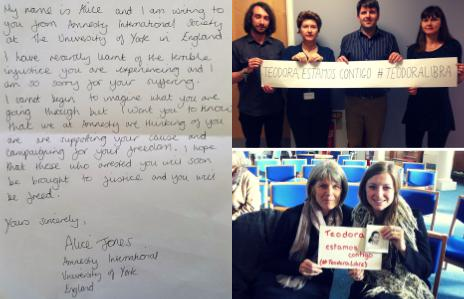 My name is Alice and I am writing to
you from Amnesty International Society
at the University of York in England
I have recently learnt of the terrible
injustice you are experiencing and I
am so sorry for your suffering.
I cannot begin to imagine what you are
going through but I want you to know
that we at Amnesty are thinking of you
are are supporting your cause and
campaigning for your freedom. I hope
that those who arrested you will soon
be brought to justice and you will
be freed.
Yours sincerely,
Alice Jones
Amnesty International
University of York
England
TEODORA, ESTAMOS CONTIGO #TEODORALIBRA
Teodora
estamos
contigo
(#TeodoraLibre)